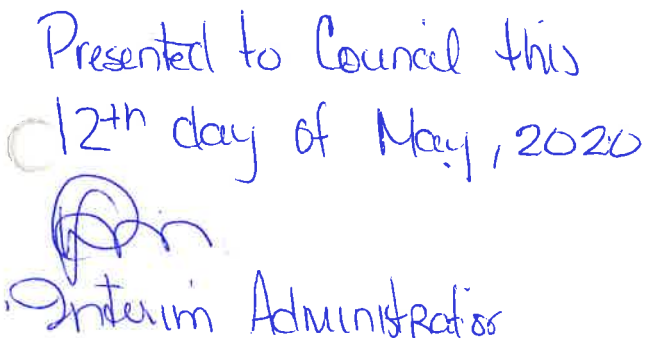 Presented to Council this
12th day of May, 2020
Interim Administrator